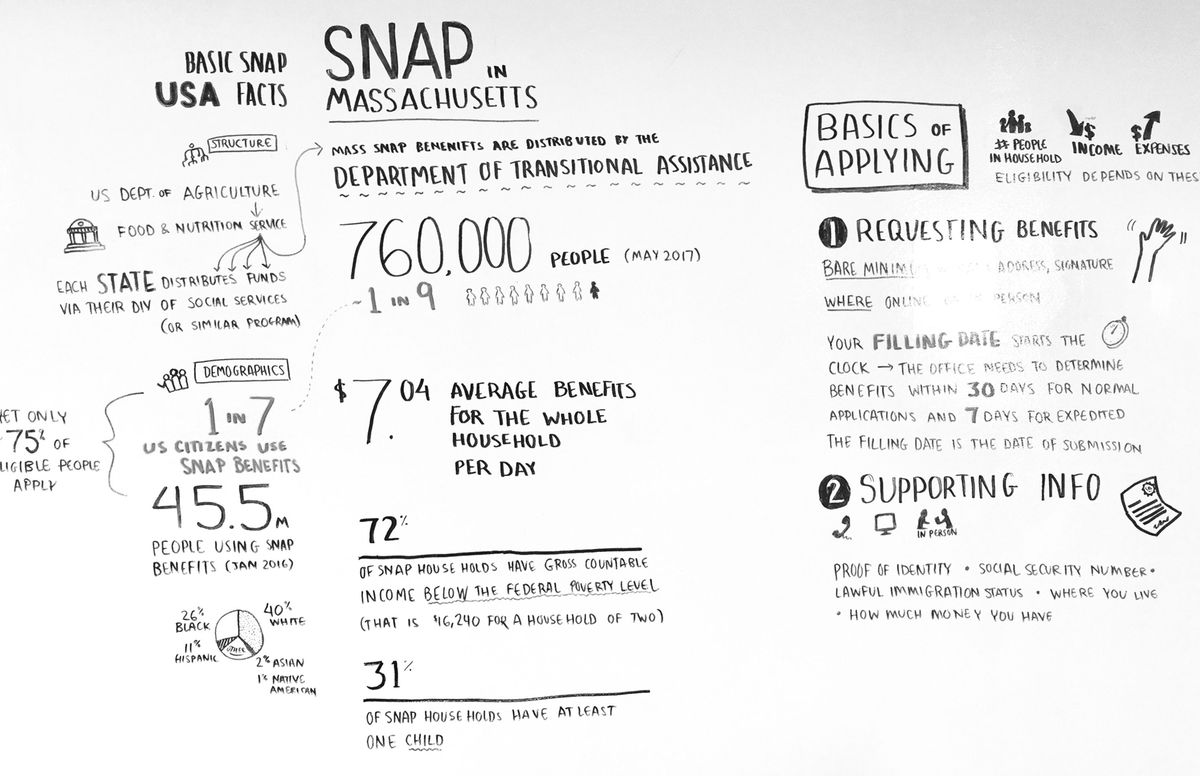 BASIC SNAP
USA FACTS
STRUCTURE
US DEPT. OF AGRICULTURE
FOOD & NUTRITION SERVICE
EACH STATE DISTRIBUTES FUNDS
VIA THEIR DIV OF SOCIAL SERVICES
(OR SIMILAR PROGRAM)
DEMOGRAPHICS
1 IN 7
US CITIZENS USE
SNAP BENEFITS
45.5M
PEOPLE USING SNAP
BENEFITS (JAN 2016)
ET ONLY
75% OF
LIGIBLE PEOPLE
APPLY
26%
BLACK
40%
WHITE
11%
HISPANIC
OTHER
2% ASIAN
1% NATIVE
AMERICAN
SNAP IN
MASSACHUSETTS
MASS SNAP BENENIFTS ARE DISTRIBUTED BY THE
DEPARTMENT OF TRANSITIONAL ASSISTANCE
760,000 PEOPLE (MAY 2017)
~1 IN 9
$7.04 AVERAGE BENEFITS
FOR THE WHOLE
HOUSEHOLD
PER DAY
72%
OF SNAP HOUSE HOLDS HAVE GROSS COUNTABLE
INCOME BELOW THE FEDERAL POVERTY LEVEL
(THAT IS $16,240 FOR A HOUSEHOLD OF TWO)
31%
OF SNAP HOUSE HOLDS HAVE AT LEAST
ONE CHILD
BASICS OF
APPLYING
# PEOPLE
IN HOUSEHOLD
$
INCOME
$
EXPENSES
ELIGIBILITY DEPENDS ON THES
1 REQUESTING BENEFITS
BARE ADDRESS, SIGNATURE
WHERE PERSON
YOUR FILLING DATE STARTS THE
CLOCK → THE OFFICE NEEDS TO DETERMINE
BENEFITS WITHIN 30 DAYS FOR NORMAL
APPLICATIONS AND 7 DAYS FOR EXPEDITED
THE FILLING DATE IS THE DATE OF SUBMISSION
2 SUPPORTING INFO
IN PERSON
PROOF OF IDENTITY • SOCIAL SECURITY NUMBER •
LAWFUL IMMIGRATION STATUS • WHERE YOU LIVE
• HOW MUCH MONEY YOU HAVE